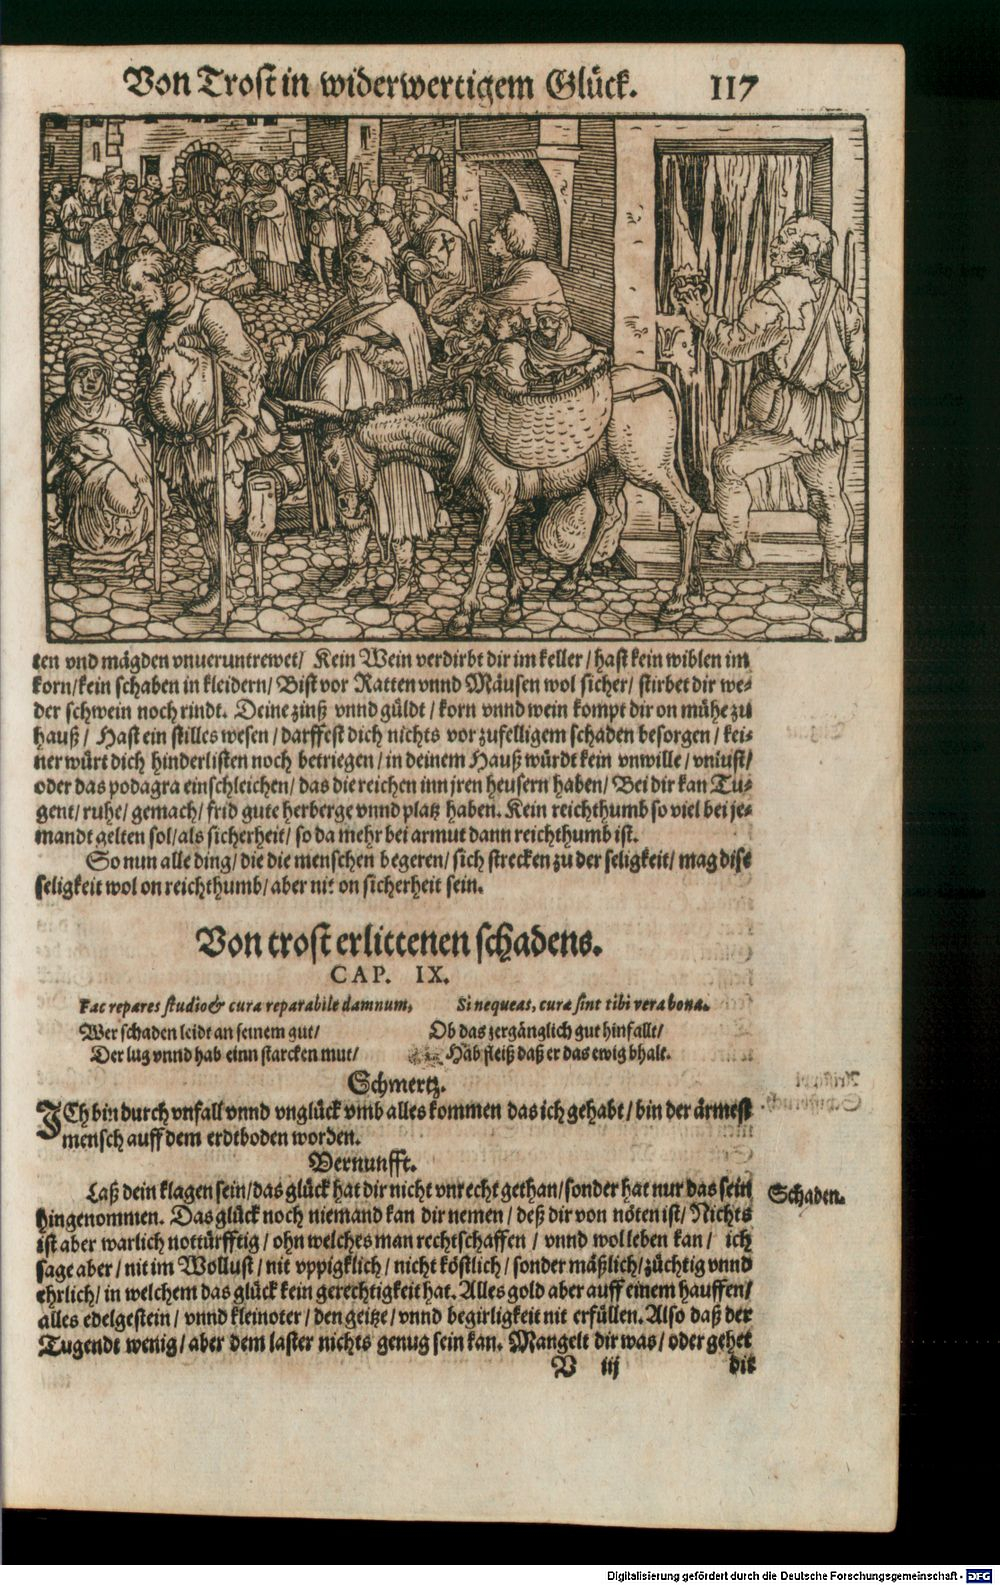 Von Trost in widerwertigem Glück. 117
ten vnd mägden vnueruntrewet/ Kein Wein verdirbt dir im keller/ hast kein wiblen im
korn/ kein schaben in kleidern/ Bist vor Ratten vnnd Mäusen wol sicher/ stirbet dir we-
der schwein noch rindt. Deine zinß vnnd güldt/ korn vnnd wein kompt dir on mühe zu
hauß/ Hast ein stilles wesen/ darffest dich nichts vor zufelligem schaden besorgen/ kei-
ner würt dich hinderlisten noch betriegen/ in deinem Hauß würdt kein vnwille/ vnlust/
oder das podagra einschleichen/ das die reichen inn jren heusern haben/ Bei dir kan Tu-
gent/ ruhe/ gemach/ frid gute herberge vnnd platz haben. Kein reichthumb so viel bei je-
mandt gelten sol/ als sicherheit/ so da mehr bei armut dann reichthumb ist.
So nun alle ding/ die die menschen begeren/ sich strecken zu der seligkeit/ mag dise
seligkeit wol on reichthumb/ aber nit on sicherheit sein.
Von trost erlittenen schadens.
CAP. IX.
Fac repares studio & cura reparabile damnum, Si nequeas, curæ sint tibi vera bona.
Wer schaden leidt an seinem gut/ Ob das zergänglich gut hinfallt/
Der lug vnnd hab einn starcken mut/ Hab fleiß daß er das ewig bhalt.
Schmertz.
ICh bin durch vnfall vnnd vnglück vmb alles kommen das ich gehabt/ bin der ärmest
mensch auff dem erdtboden worden.
Vernunfft.
Laß dein klagen sein/ das glück hat dir nicht vnrecht gethan/ sonder hat nur das sein Schaden.
hingenommen. Das glück noch niemand kan dir nemen/ deß dir von nöten ist/ Nichts
ist aber warlich nottürfftig/ ohn welches man rechtschaffen/ vnnd wol leben kan/ ich
sage aber/ nit im Wollust/ nit vppigklich/ nicht köstlich/ sonder mäßlich/ züchtig vnnd
ehrlich/ in welchem das glück kein gerechtigkeit hat. Alles gold aber auff einem hauffen/
alles edelgestein/ vnnd kleinoter/ den geitze/ vnnd begirligkeit nit erfüllen. Also daß der
Tugendt wenig/ aber dem laster nichts genug sein kan. Mangelt dir was/ oder gehet
V iij dir
Digitalisierung gefördert durch die Deutsche Forschungsgemeinschaft - DFG